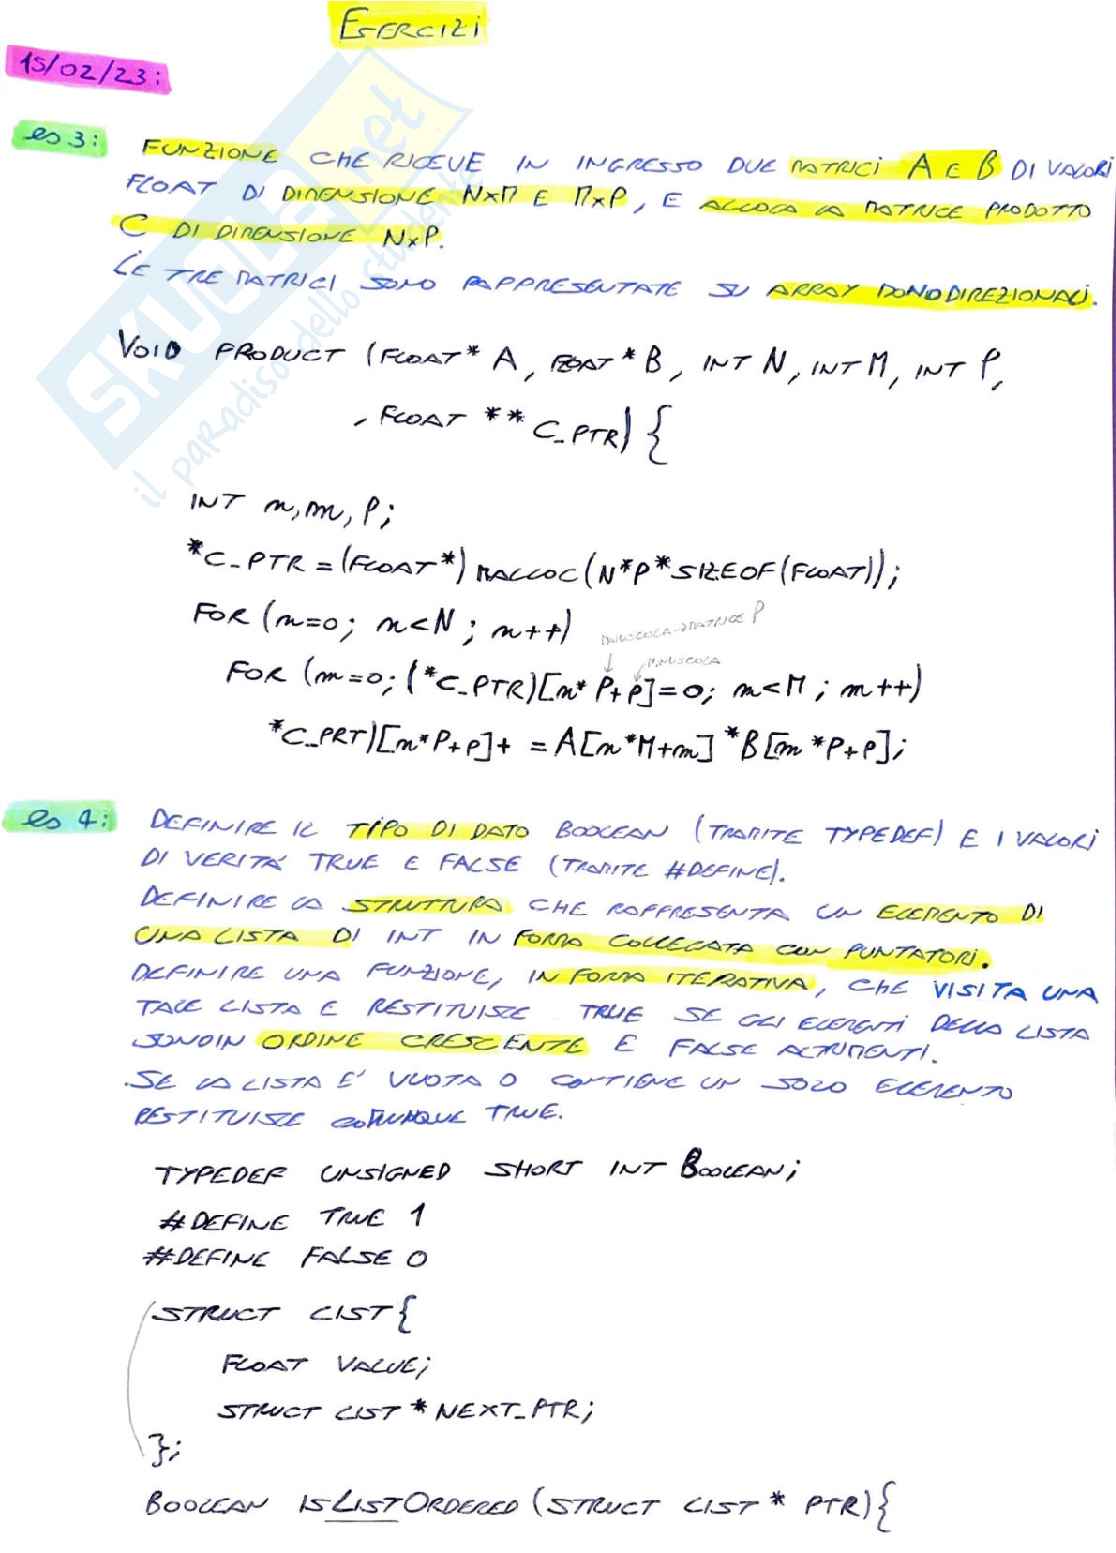 ESERCIZI
15/02/23:
es 3: FUNZIONE CHE RICEVE IN INGRESSO DUE MATRICI A E B DI VALORI
FLOAT DI DIMENSIONE N×M E M×P, E ALLOCA LA MATRICE PRODOTTO
C DI DIMENSIONE N×P.
LE TRE MATRICI SONO RAPPRESENTATE SU ARRAY MONODIREZIONALI.
VOID PRODUCT (FLOAT* A, FLOAT* B, INT N, INT M, INT P,
, FLOAT ** C_PTR) {
INT n, m, p;
*C_PTR = (FLOAT*) MALLOC(N*P*SIZEOF(FLOAT));
FOR (n=0; n<N; n++)
MAIUSCOLA→MATRICE P
MINUSCOLA
FOR (m=0; (*C_PTR)[n*P+p]=0; m<M; m++)
*C_PRT)[n*P+p]+ = A[n*M+m]*B[m*P+p];
es 4: DEFINIRE IL TIPO DI DATO BOOLEAN (TRAMITE TYPEDEF) E I VALORI
DI VERITÀ TRUE E FALSE (TRAMITE #DEFINE).
DEFINIRE LA STRUTTURA CHE RAPPRESENTA UN ELEMENTO DI
UNA LISTA DI INT IN FORMA COLLEGATA CON PUNTATORI.
DEFINIRE UNA FUNZIONE, IN FORMA ITERATIVA, CHE VISITA UNA
TALE LISTA E RESTITUISCE TRUE SE GLI ELEMENTI DELLA LISTA
SONOIN ORDINE CRESCENTE E FALSE ALTRIMENTI.
SE LA LISTA E' VUOTA O CONTIENE UN SOLO ELEMENTO
RESTITUISCE COMUNQUE TRUE.
TYPEDEF UNSIGNED SHORT INT BOOLEAN;
#DEFINE TRUE 1
#DEFINE FALSE 0
STRUCT LIST{
FLOAT VALUE;
STRUCT LIST * NEXT_PTR;
};
BOOLEAN ISLISTORDERED (STRUCT LIST * PTR){
SKUOLA.net
il paradiso dello studente